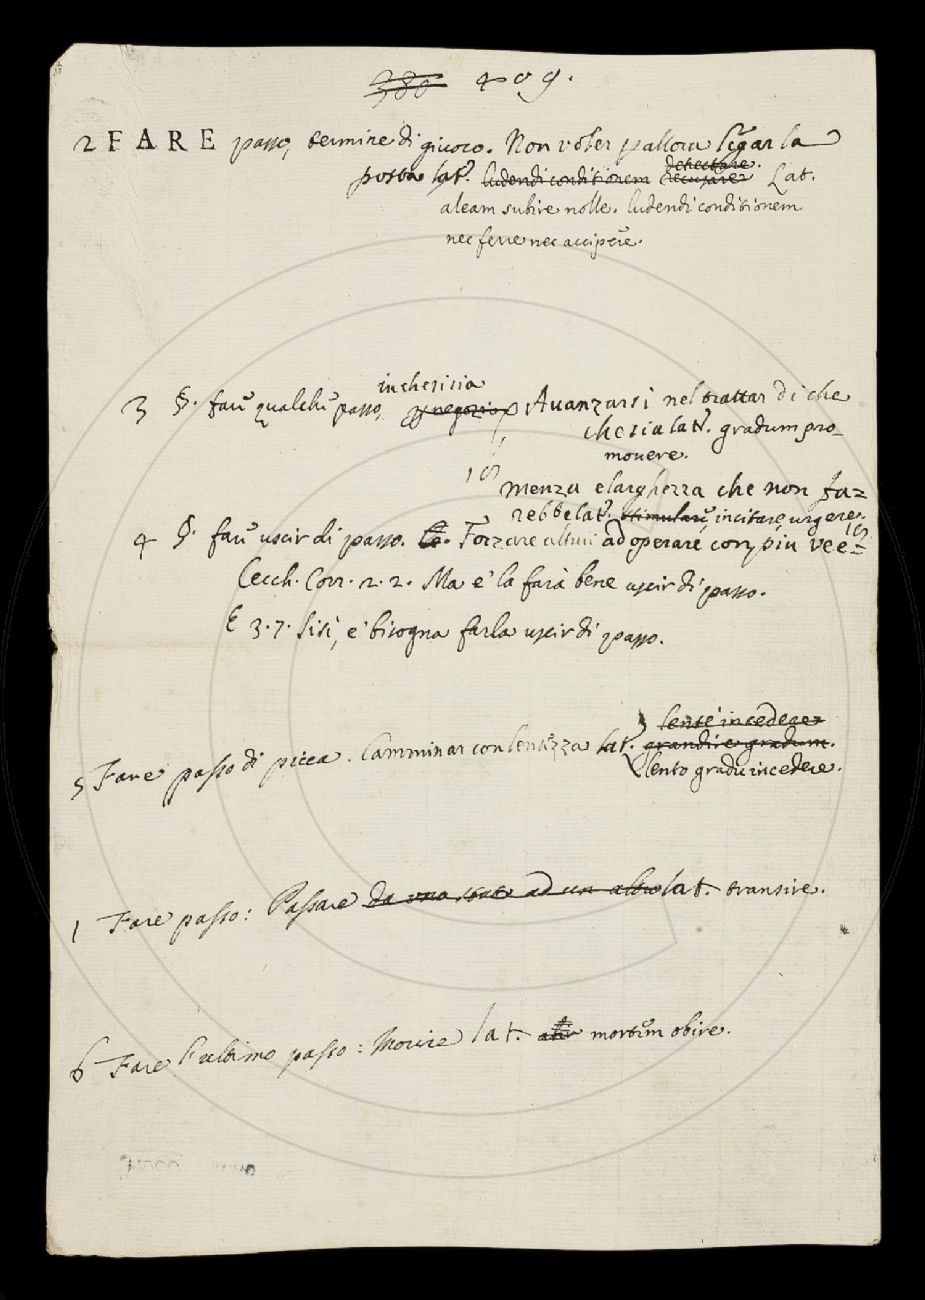 380 409.
2 FARE passo, termine di giuoco. Non voler pallora legar la
posta lat. ludendi conditionem detrectare. recusare Lat.
aleam subire nolle. ludendi conditionem
nec ferre nec accipere.
in chesisia
3 §. fare qualche passo, negozio Avanzarsi nel trattar di che
che sia lat. gradum pro-
movere.
menza e larghezza che non fa-
rebbe lat. stimulare, incitare, urgere.
4 §. fare uscir di passo. Forzare altrui ad operare con piu vee-
Cecch. Corr. 2. 2. Ma e' la farà bene uscir di passo.
E 3. 7. Sisì, e' bisogna farla uscir di passo.
lente incedere
5 Fare passo di picca. Camminar con lentezza lat. grandire gradum.
lento gradu incedere.
1 Fare passo: Passare da uno stato ad un altro lat. transire.
6 Fare l'ultimo passo: Morire lat. mortem obire.